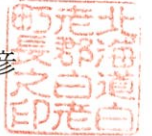 彦
北海道白
老郡白老
町長之印